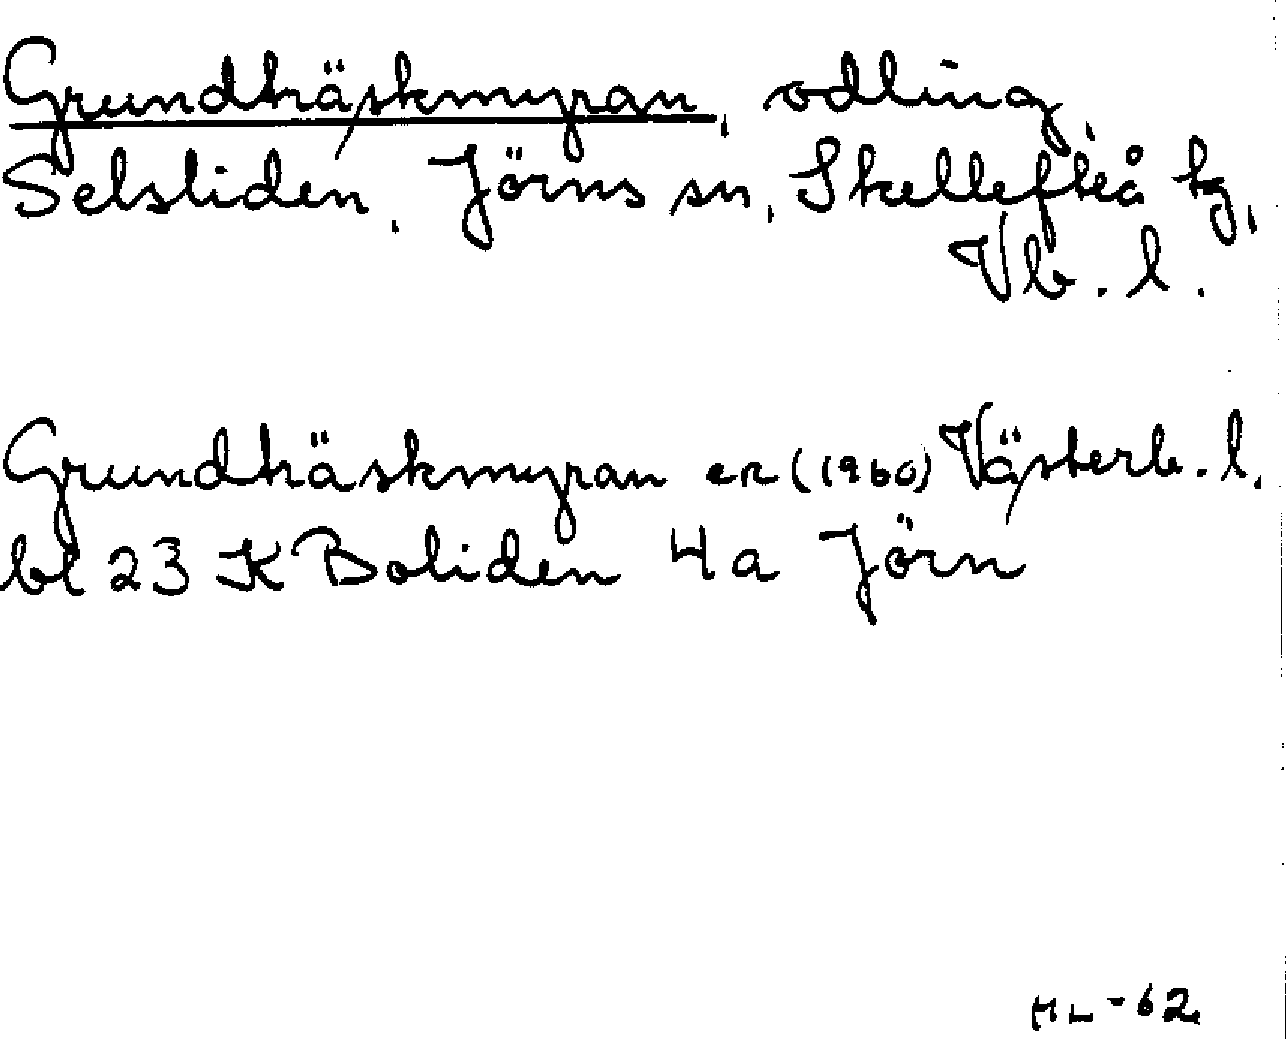 Grundträskmyran, odling,
Selsliden, Jörns sn, Skellefteå tg,
Vb. l.
Grundträskmyran ek (1960) Västerb. l.
bl 23 K Boliden 4a Jörn
HL-62